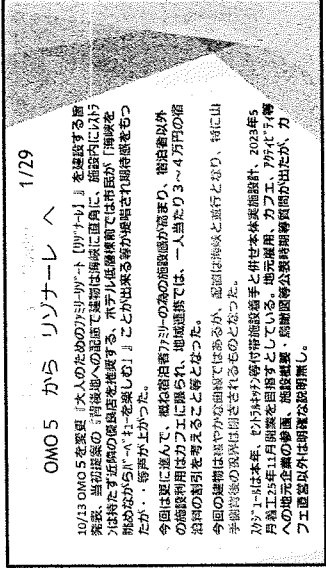 OMO5 から リゾナーレ へ 1/29
10/13 OMO5を変更『大人のためのﾌｧﾐﾘｰﾘｿﾞｰﾄ【ﾘｿﾞﾅｰﾚ】』を建設する旨
発表、当初提案の『背後地への配慮で建物は海峡に直角に、施設内にﾚｽﾄﾗ
ﾝは持たず近隣の優良店を推奨する、ホテル低層棟前では市民が「海峡を
眺めながらﾊﾞｰﾍﾞｷｭｰを楽しむ』』ことが出来る等が提唱され期待感をもっ
たが・・等声が上がった。
今回は更に進んで、概ね宿泊者ﾌｧﾐﾘｰの為の施設感が高まり、宿泊者以外
の施設利用はカフェに限られ、地域連携では、一人当たり３～４万円の宿
泊料の割引を考えること等となった。
今回の建物は緩やかな曲線ではあるが、配置は海峡と並行となり、特に山
手側背後の視界は閉ざされるものとなった。
ｽｹｼﾞｭｰﾙは本年、ｾﾝﾄﾗﾙｷｯﾁﾝ等付帯施設着手と併せ本体実施設計、2023年5
月着工25年11月開業を目指すとしている。地元雇用、カフェ、ｱｸﾃｨﾋﾞﾃｨ等
への地元企業の参画、施設概要、鳥瞰図等公表時期等質問が出たが、カ
フェ直営以外は明確な説明無し。